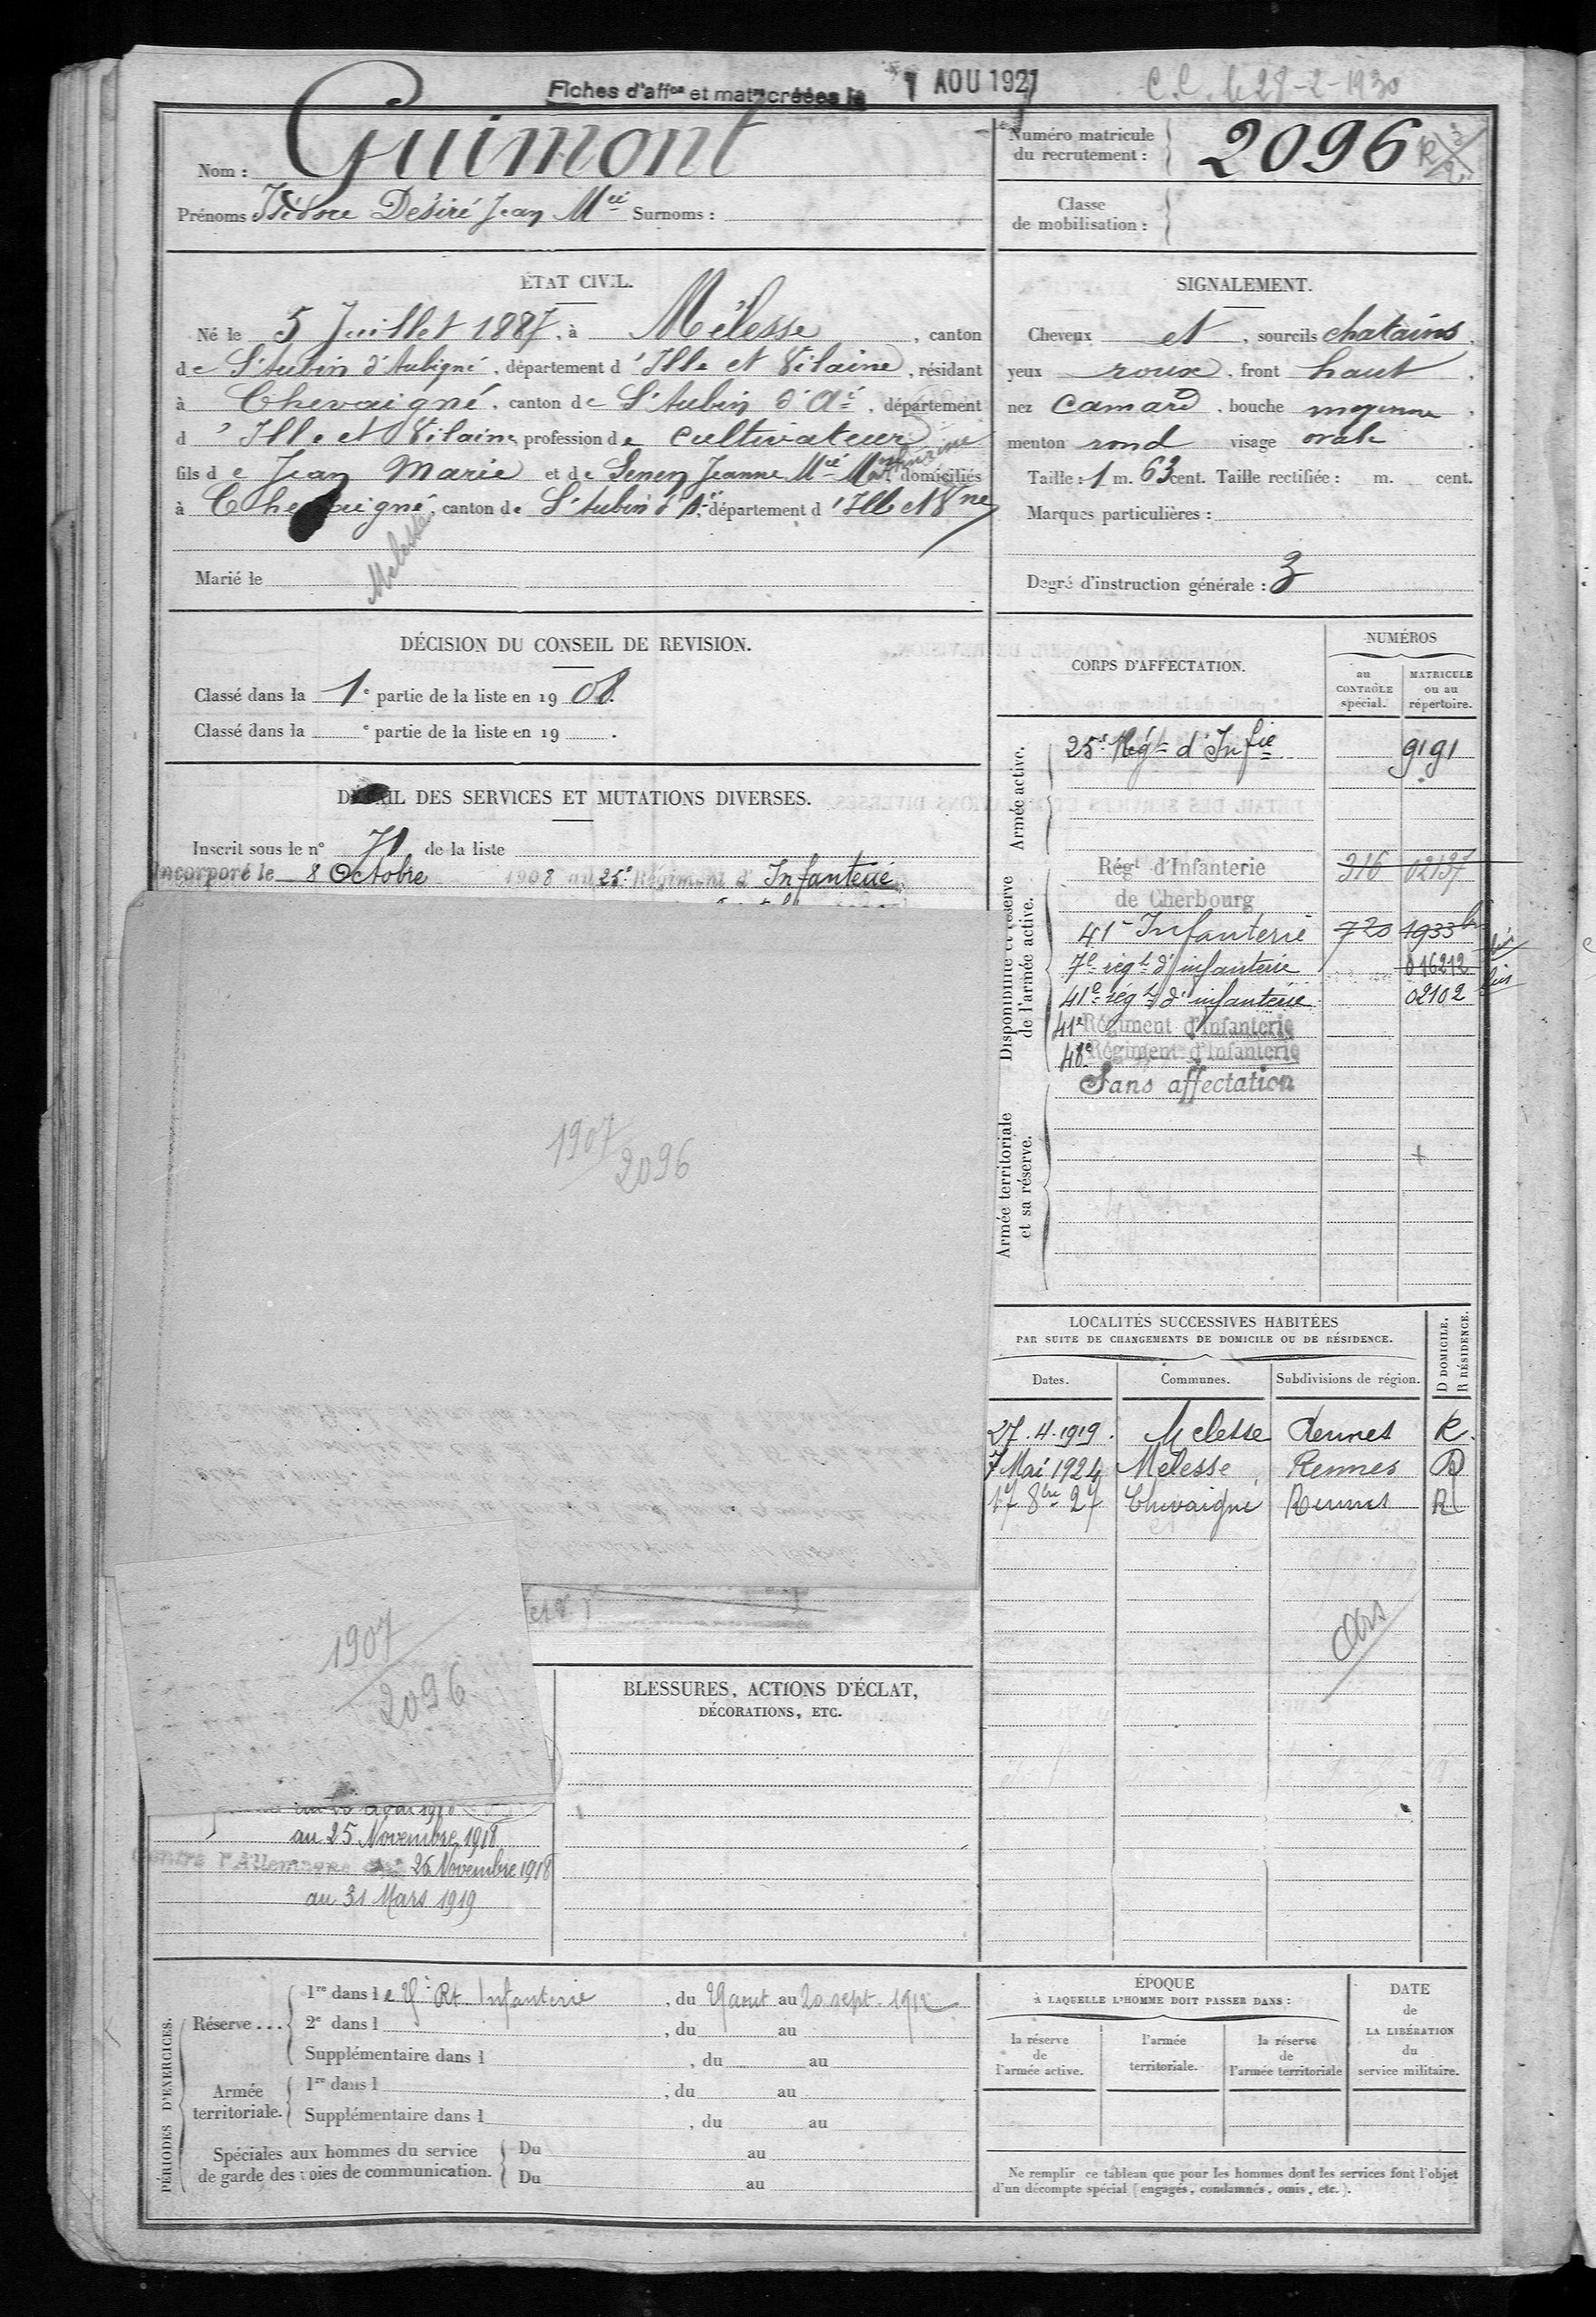 Fiches d'aff^on et mat^r créées le 1 AOU 1927
C.C. le 28-2-1930
Nom : Guimont
Prénoms Isidore Désiré Jean M^ie Surnoms :
Numéro matricule
du recrutement : 2096
Classe
de mobilisation :
ÉTAT CIVIL.
Né le 5 Juillet 1887, à Melesse, canton
de S^t Aubin d'Aubigné, département d'Ille et Vilaine, résidant
à Chevaigné, canton de S^t Aubin d'A^é, département
d'Ille et Vilaine, profession de cultivateur
fils de Jean Marie et de Jeanne M^ie Mathurine domiciliés
à Chevaigné, canton de S^t Aubin d'A^é, département d'Ille et V^ne
Melesse
Marié le
SIGNALEMENT.
Cheveux et, sourcils chatains,
yeux roux, front haut,
nez camard, bouche moyenne,
menton rond visage ovale.
Taille : 1 m. 63 cent. Taille rectifiée : m. cent.
Marques particulières :
Degré d'instruction générale : 3
DÉCISION DU CONSEIL DE REVISION.
Classé dans la 1^e partie de la liste en 1908.
Classé dans la ^e partie de la liste en 19 .
DÉTAIL DES SERVICES ET MUTATIONS DIVERSES.
Inscrit sous le n° 71 de la liste
Incorporé le 8 Octobre 1908 au 25^e Régiment d'Infanterie
1907
2096
1907
2096
CORPS D'AFFECTATION.
NUMÉROS
au
CONTRÔLE
spécial.
MATRICULE
ou au
répertoire.
Armée active.
25^e Rég^t d'Inf^ie 9191
Disponibilité et réserve
de l'armée active.
Rég^t d'Infanterie 316 02137
de Cherbourg
41^e Infanterie 720 1933 bis
7^e rég^t d'infanterie 016212
41^e rég^t d'infanterie 02102
41^e Régiment d'Infanterie
48^e Régiment d'Infanterie
Sans affectation
Armée territoriale
et sa réserve.
LOCALITÉS SUCCESSIVES HABITÉES
PAR SUITE DE CHANGEMENTS DE DOMICILE OU DE RÉSIDENCE.
Dates. Communes. Subdivisions de région. D DOMICILE. R RÉSIDENCE.
27.4.1919. Melesse Rennes R.
7 Mai 1924 Melesse Rennes D
17 8^bre 27 Chevaigné Rennes R
BLESSURES, ACTIONS D'ÉCLAT,
DÉCORATIONS, ETC.
au 25 Novembre 1918
Contre l'Allemagne du 26 Novembre 1918
au 31 Mars 1919
PÉRIODES D'EXERCICES.
Réserve ... 1^re dans le R^t Infanterie, du 29 aout au 20 sept. 1912
2^e dans l , du au
Supplémentaire dans l , du au
Armée
territoriale. 1^re dans l , du au
Supplémentaire dans l , du au
Spéciales aux hommes du service
de garde des voies de communication. Du au
Du au
ÉPOQUE
À LAQUELLE L'HOMME DOIT PASSER DANS :
la réserve
de
l'armée active.
l'armée
territoriale.
la réserve
de
l'armée territoriale
DATE
de
LA LIBÉRATION
du
service militaire.
Ne remplir ce tableau que pour les hommes dont les services font l'objet
d'un décompte spécial (engagés, condamnés, omis, etc.).